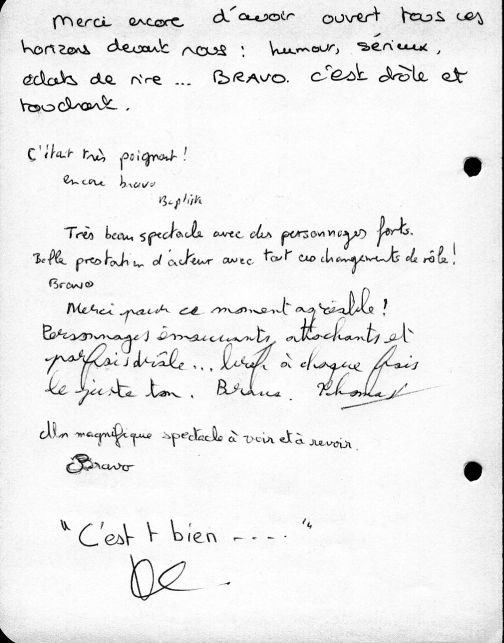 Merci encore d'avoir ouvert tous ces
horizons devant nous : humour, sérieux,
éclats de rire ... BRAVO. C'est drôle et
touchant.
C'était très poignant !
encore bravo
Baptiste
Très beau spectacle avec des personnages forts.
Belle prestation d'acteur avec tout ces changements de rôle !
Bravo
Merci pour ce moment agréable !
Personnages émouvants, attachants et
parfois drôle... bref à chaque fois
le juste ton. Bravo. Thomas
Un magnifique spectacle à voir et à revoir.
Bravo
"C'est t bien ----"